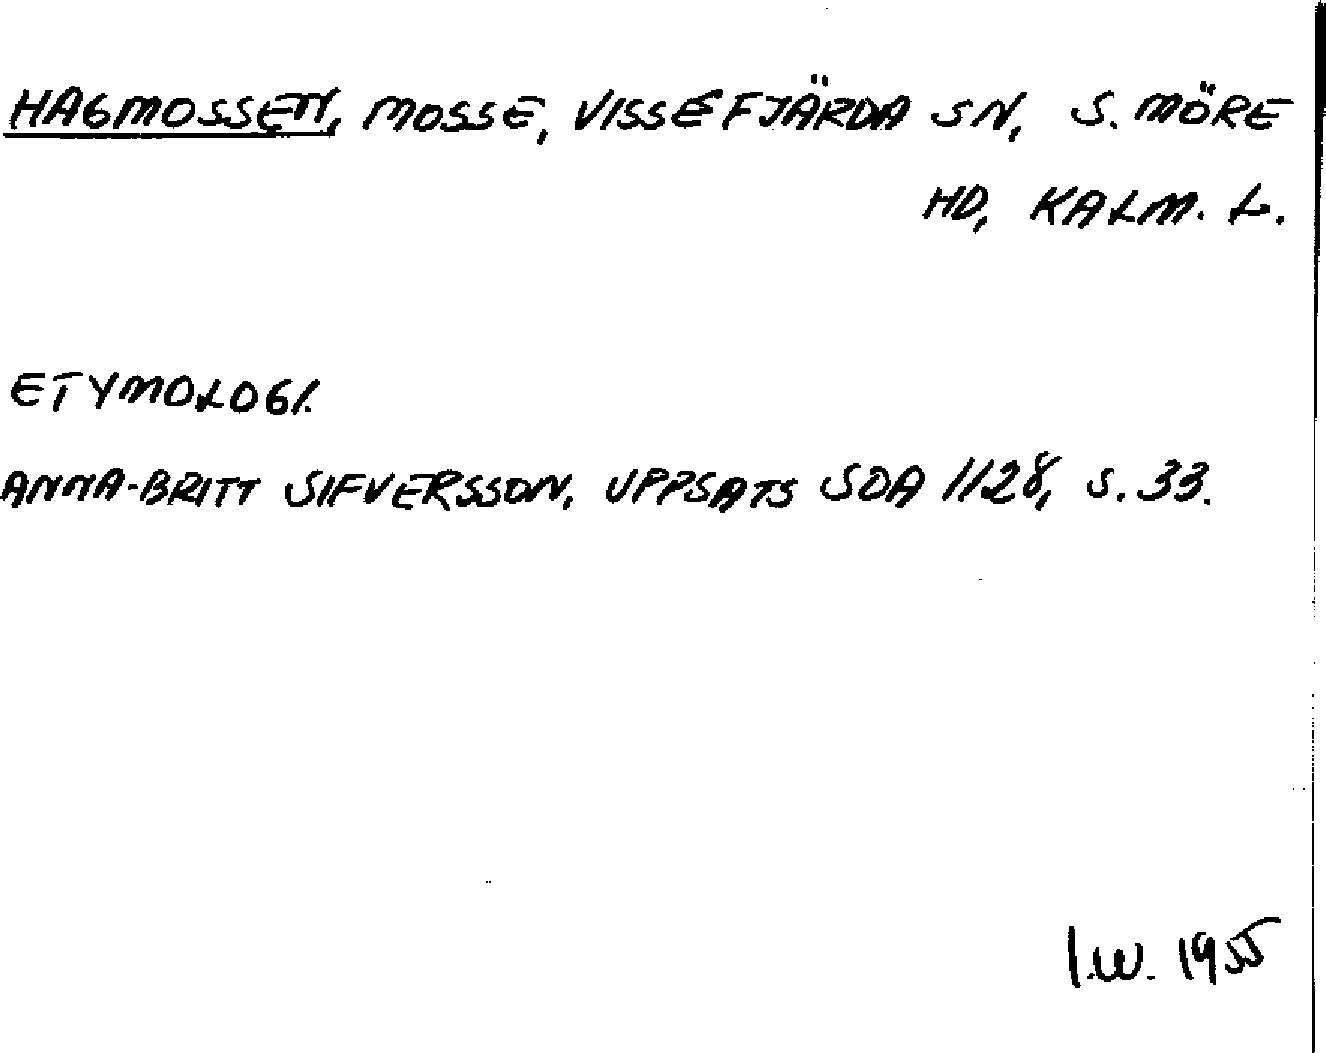 HAGMOSSEN, MOSSE, VISSEFJÄRDA SN, S. MÖRE
HD, KALM. L.
ETYMOLOGI.
ANNA-BRITT SIFVERSSON, UPPSATS SOA 1128, s. 33.
I.W. 1955